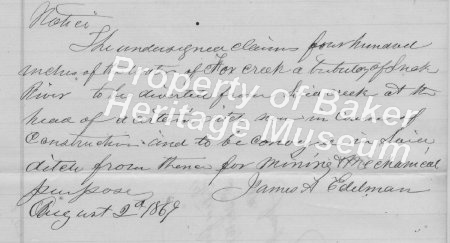 Notice
The undersigned claims four hundred
inches of the water of Fox creek a tributary of Snak
River to be diverted from creek at the
head of a certain in course of
construction and to be conveyed in
ditch from thence for Mining & Mechanical
purpose James A Edelman
August 2d 1869
Property of Baker
Heritage Museum